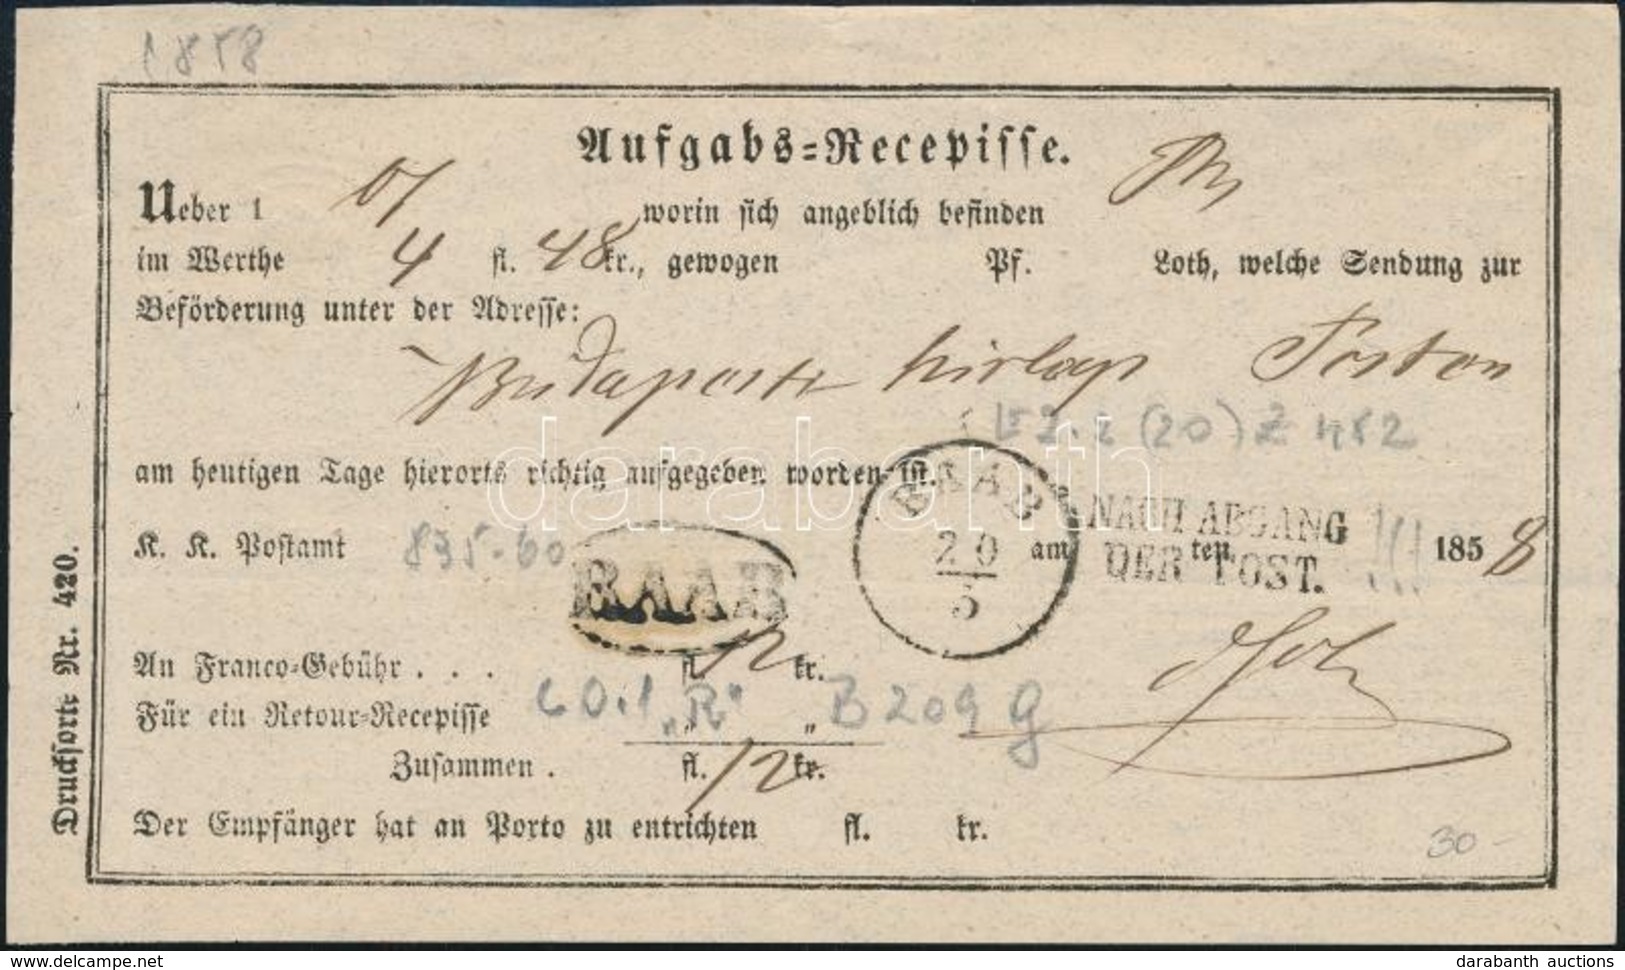 1858
Aufgabs=Recepisse.
Ueber 1 worin sich angeblich befinden
im Werthe 4 fl. 48 kr., gewogen Pf. Loth, welche Sendung zur
Beförderung unter der Adresse:
Budapesti hirlap Pesten
(20)
am heutigen Tage hierorts richtig aufgegeben worden ist.
RAAB
20
5
NACH ABGANG
DER POST.
K. K. Postamt 835-60 am ten 1858
RAAB
An Franco=Gebühr . . . fl. 12 kr.
Für ein Retour=Recepisse " "
60.1 "R" B 209 g
Zusammen . fl. 12 kr.
Der Empfänger hat an Porto zu entrichten fl. kr.
30-
Drucksorte Nr. 420.
darabanth
delcampe.net
darabanth auctions